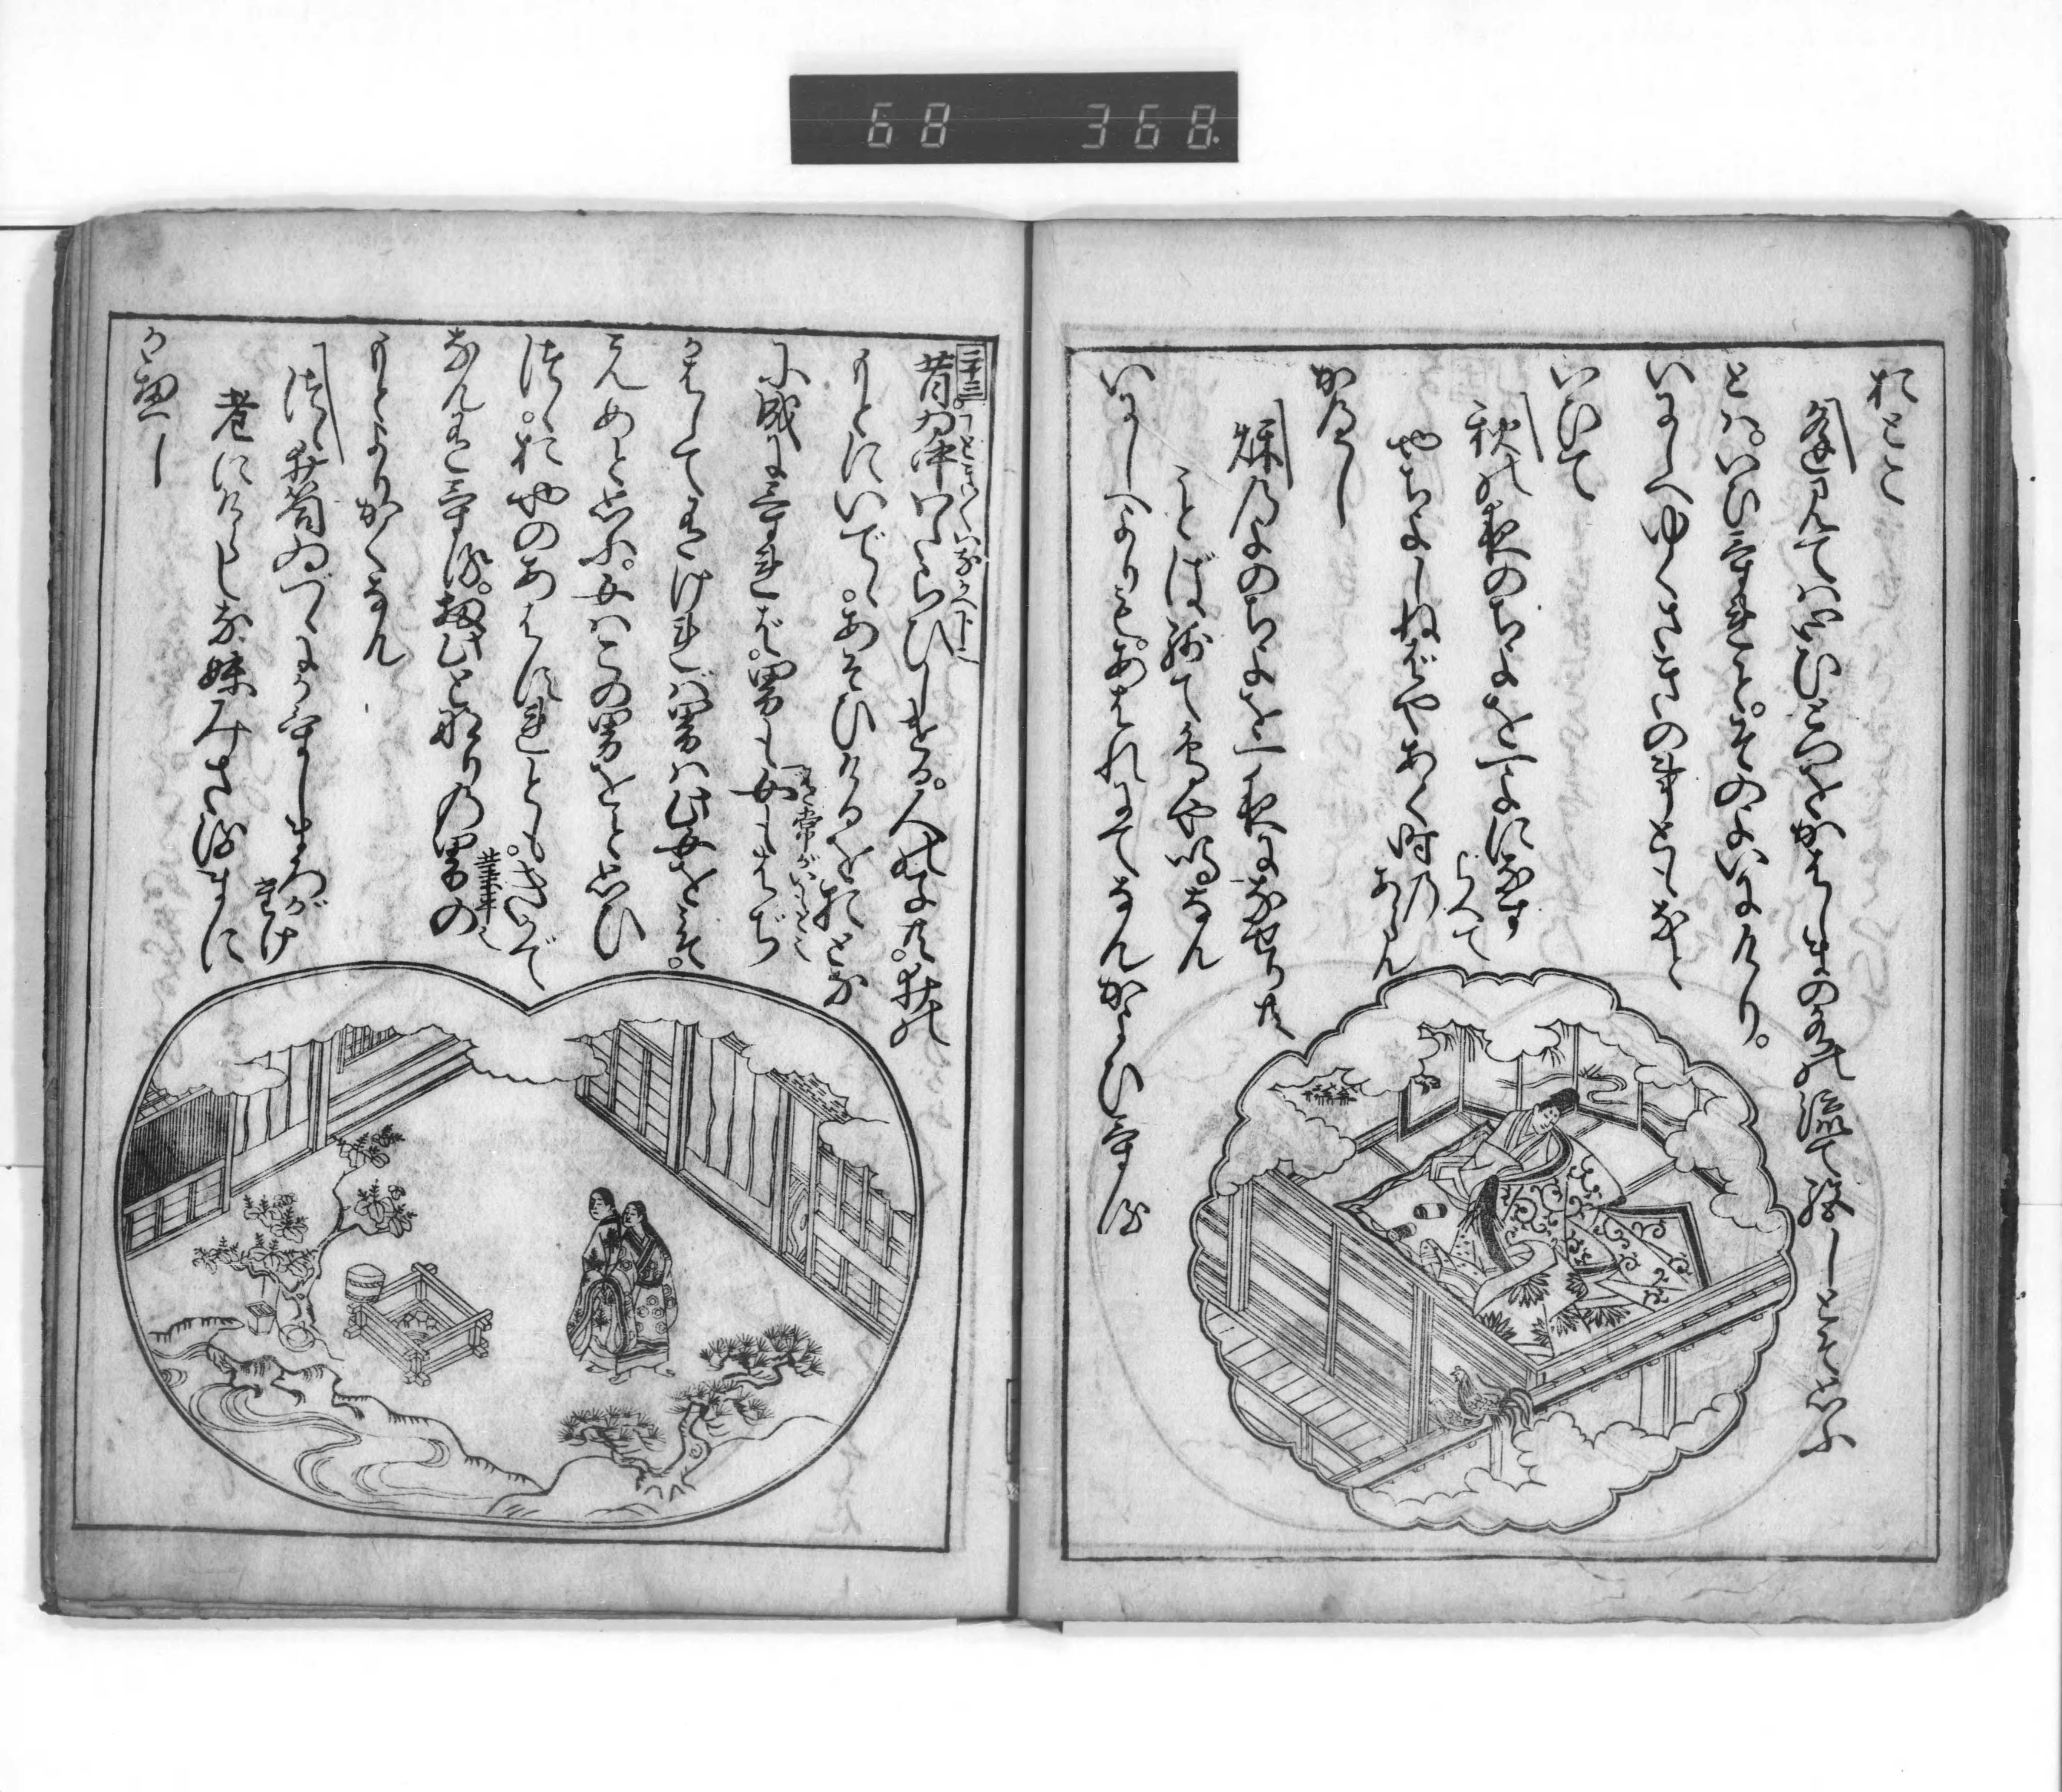 68 368.
おとこ
逢見ては心ひとつをかはしまの水の流て絶しとそ思ふ
とは。いひけれと。そのよいにけり。
いにしへゆくさきの事ともなと
いひて
秋の夜のちよを一よになすらへて
やちよしねばやあく時のあらん
かへし
秌乃よのちよを一夜になせりとも
ことば残て鳥や鳴なん
いにしへよりも。あはれにてなんかよひける
二十三
昔ゐ中わたらひしける。人の子とも。井の
もとにいでゝ。あそひけるをおとな
に成にければ。男も女もはぢ
かはして有けれど男は此女をこそ。
えめと思ふ。女はこの男をと思ひ
つゝ。おやのあはすれとも。きかで
業平也
なん有ける。扨此となりの男の
もとよりかくなん
つゝ井筒ゐづゝにかけしまろがたけ
老にけらしな妹みさるまに
かへし